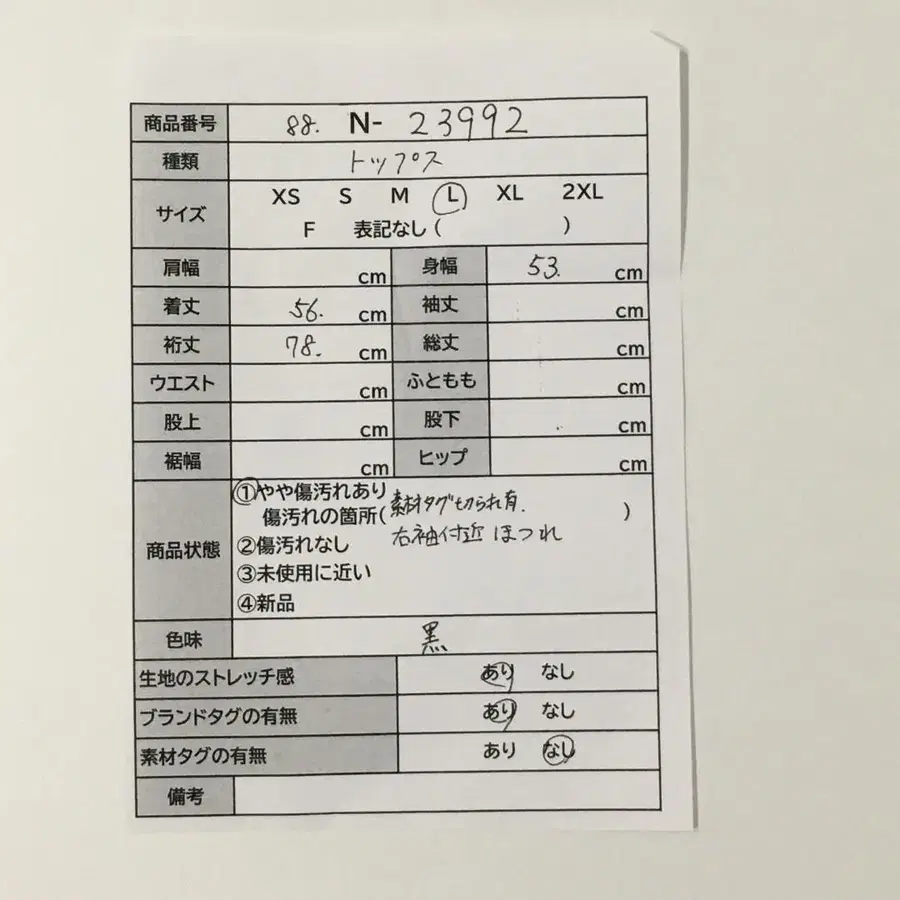 商品番号 88. N- 23992
種類 トップス
サイズ XS S M L XL 2XL
F 表記なし ( )
肩幅 cm 身幅 53. cm
着丈 56. cm 袖丈 cm
裄丈 78. cm 総丈 cm
ウエスト cm ふともも cm
股上 cm 股下 cm
裾幅 cm ヒップ cm
商品状態 ①やや傷汚れあり
傷汚れの箇所(素材タグ切られ有. )
右袖付近 ほつれ
②傷汚れなし
③未使用に近い
④新品
色味 黒
生地のストレッチ感 あり なし
ブランドタグの有無 あり なし
素材タグの有無 あり なし
備考